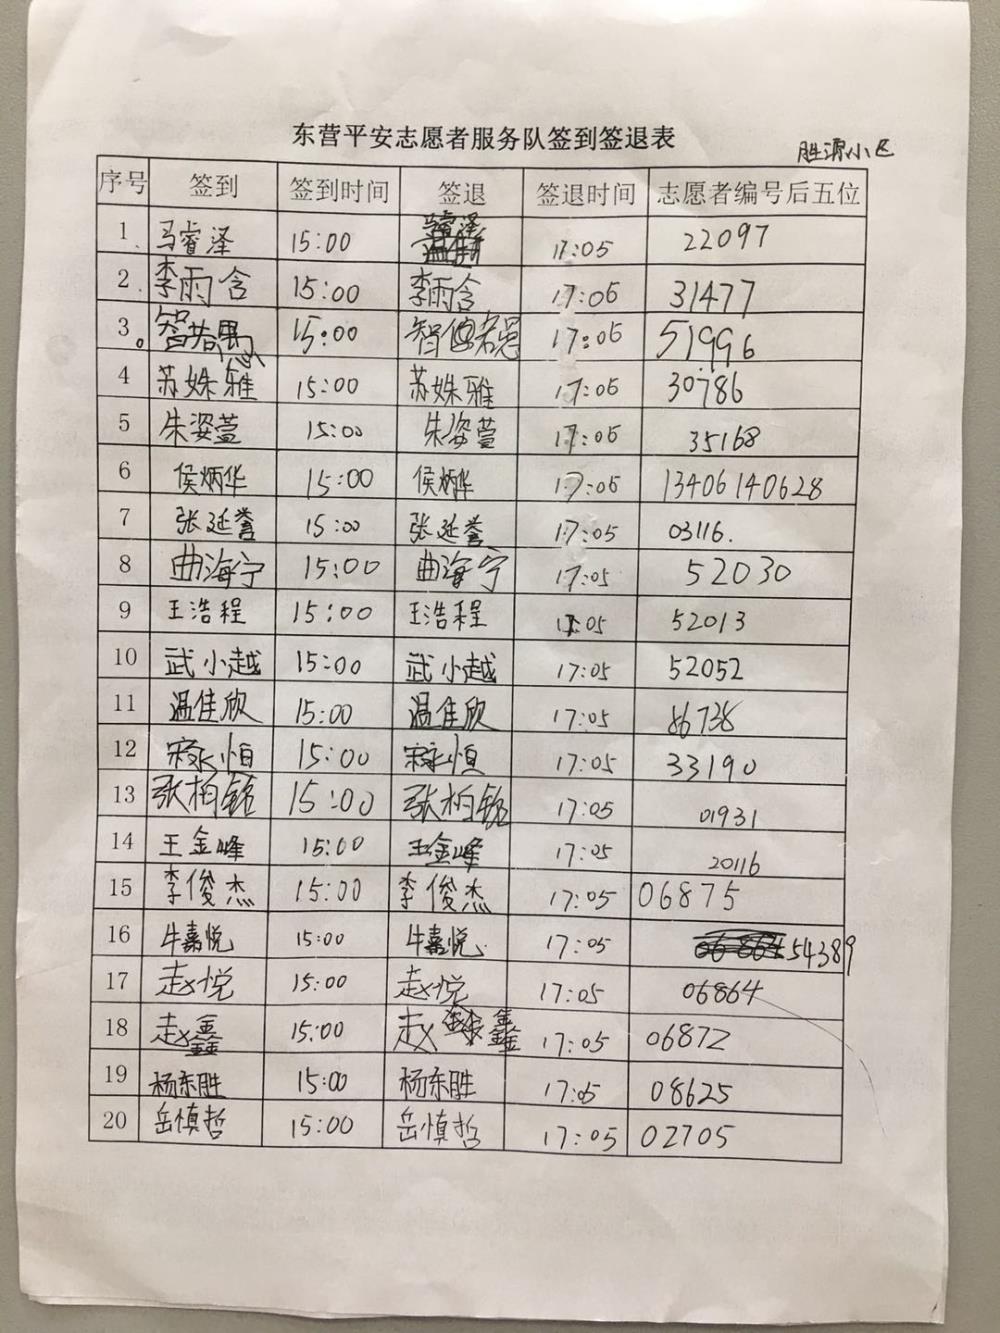 东营平安志愿者服务队签到签退表
胜源小区
序号 签到 签到时间 签退 签退时间 志愿者编号后五位
1 马睿泽 15:00 马睿泽 17:05 22097
2 李雨含 15:00 李雨含 17:05 31477
3 智若愚 15:00 智若愚 17:05 51996
4 苏姝雅 15:00 苏姝雅 17:05 30786
5 朱姿萱 15:00 朱姿萱 17:05 35168
6 侯炳华 15:00 侯炳华 17:05 13406140628
7 张延誉 15:00 张延誉 17:05 03116.
8 曲海宁 15:00 曲海宁 17:05 52030
9 王浩程 15:00 王浩程 17:05 52013
10 武小越 15:00 武小越 17:05 52052
11 温佳欣 15:00 温佳欣 17:05 86738
12 宋永恒 15:00 宋永恒 17:05 33190
13 张柏铭 15:00 张柏铭 17:05 01931
14 王金峰 15:00 王金峰 17:05 20116
15 李俊杰 15:00 李俊杰 17:05 06875
16 牛嘉悦 15:00 牛嘉悦 17:05 54389
17 赵悦 15:00 赵悦 17:05 06864
18 赵鑫 15:00 赵鑫 17:05 06872
19 杨东胜 15:00 杨东胜 17:05 08625
20 岳慎哲 15:00 岳慎哲 17:05 02705